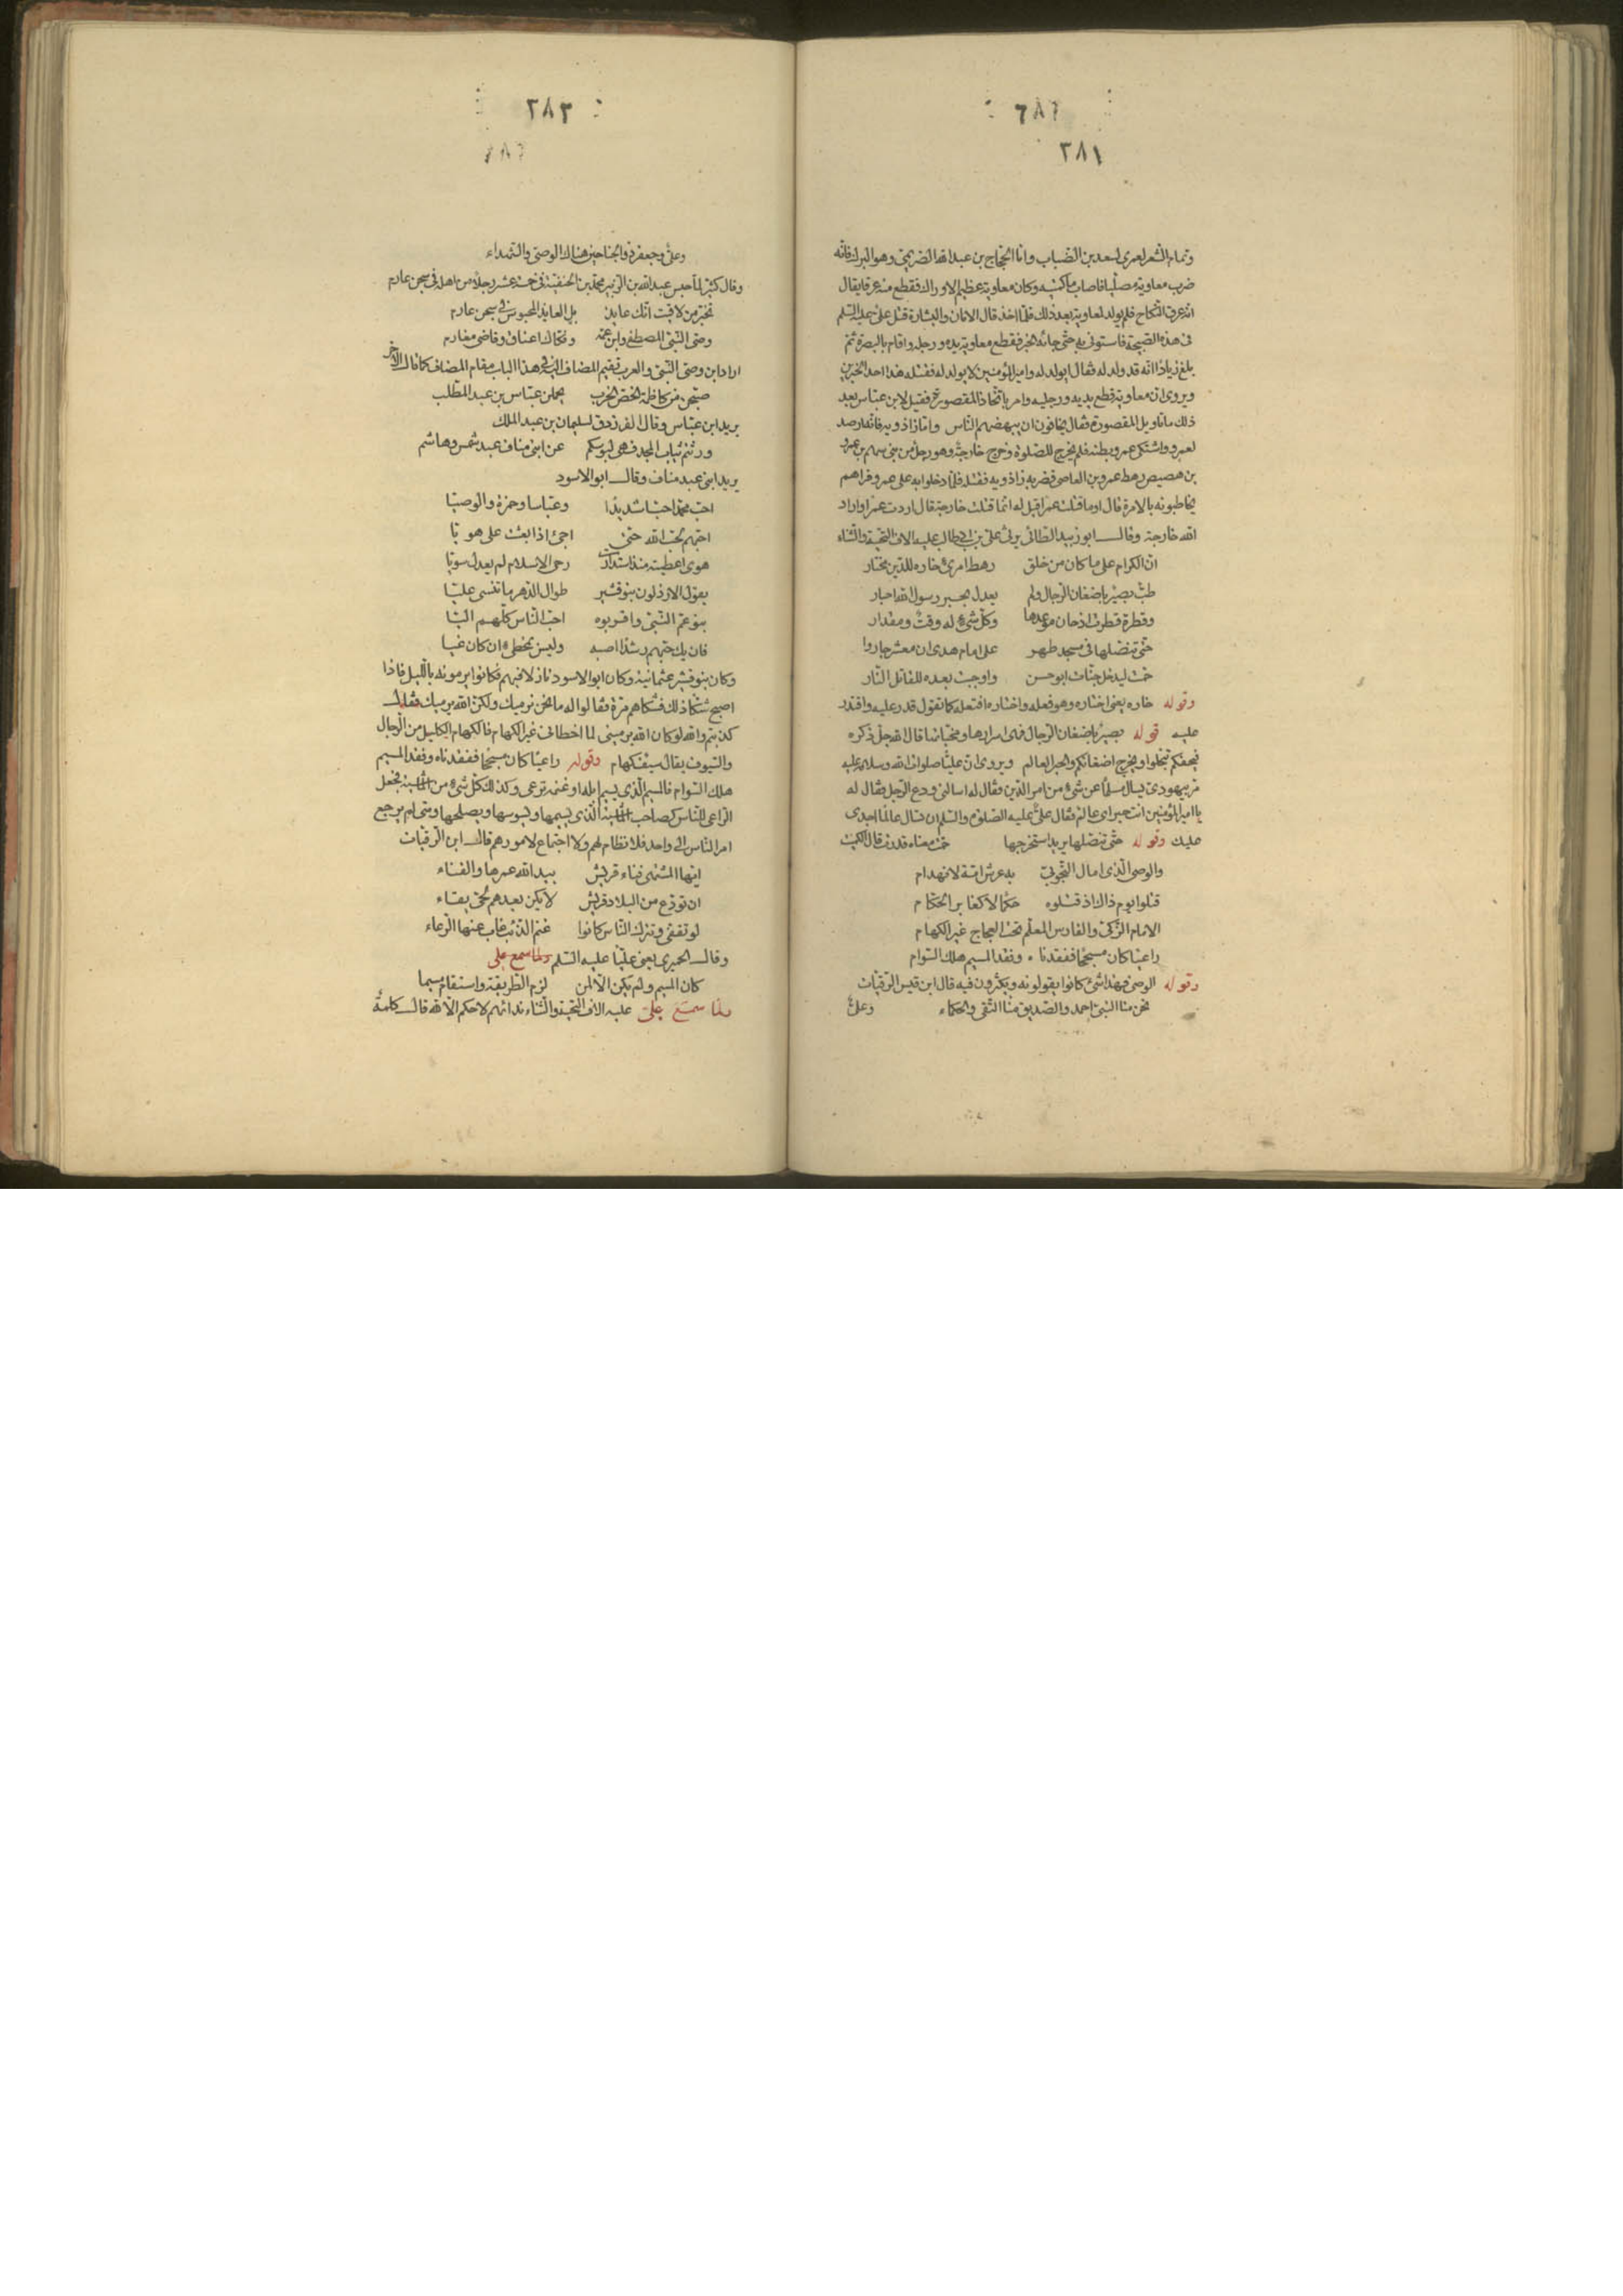 ٢٨٢
٢٨١
وتمام الشعر لعمرى لسعد بن الضباب واما الحجاج بن عبد الله الصريمى وهو البرك فانه
ضرب معاوية مصليا فاصاب مأكمته وكان معاوية عظيم الاوراك فقطع منه عرقا يقال
انه عرق النكاح فلم يولد لمعاوية بعد ذلك فلما اخذ قال الامان والبشارة قتل على عليه السلم
فى هذه الصبيحة فاستونى به حتى جائه الخبر فقطع معاوية يده ورجله واقام بالبصرة ثم
بلغ زيادا انه قد ولد له فقال ايولد له وامير المؤمنين لا يولد له فقتله هذا احد الخبرين
ويروى ان معاوية قطع يديه ورجليه وامر باتخاذ المقصورة فقيل لابن عباس بعد
ذلك ما تاويل المقصورة فقال يخافون ان يبهضهم الناس واما زاذويه فانه ارصد
لعمرو واشتكى عمرو بطنه فلم يخرج للصلوة وخرج خارجة وهو رجل من بنى سهم بن عمرو
بن هصيص رهط عمرو بن العاصى فضربه زاذويه فقتله فلما دخلوا به على عمرو فراهم
يخاطبونه بالامرة قال اوما قتلت عمرا قيل له انما قتلت خارجة قال اردت عمرا واراد
الله خارجة وقال ابو زبيد الطائى يرثى على بن ابى طالب عليه الاف التحية والثناء
ان الكرام على ما كان من خلق رهط امرئ خاره للدين مختار
طب بصير باضغان الرجال ولم يعدل بحبر رسول الله احبار
وقطرة قطرت اذ حان موعدها وكل شىء له وقت ومقدار
حتى تنصلها فى مسجد طهر على امام هدى ان معشر جاروا
حمت ليدخل جنات ابو حسن واوجبت بعده للقاتل النار
وقوله خاره يعنى اختاره وهو فعله واختاره افتعله كما تقول قدر عليه واقتدر
عليه قوله بصير باضغان الرجال فهى اسرارها ومخبياتها قال الله جل ذكره
فيحفكم تبخلوا ويخرج اضغانكم والحبر العالم ويروى ان عليا صلوات الله وسلامه عليه
مر بيهودى يسال مسلما عن شىء من امر الدين فقال له اسالنى ودع الرجل فقال له
يا امير المؤمنين انت حبر اى عالم فقال على عليه الصلوة والسلم ان تسال عالما اجدى
عليك وقوله حتى تنصلها يريد استخرجها حمت معناه قدرت قال الكميت
والوصى الذى امال التجوبى به عرش امة لانهدام
قتلوا يوم ذاك اذ قتلوه حكما لا كغابر الحكام
الامام الزكى والفارس المعلم تحت العجاج غير الكهام
راعيا كان مسجحا ففقدناه وفقد المسيم هلك السوام
وقوله الوصى فهذا شئ كانوا يقولونه ويكثرون فيه قال ابن قيس الرقيات
نحن منا النبى احمد والصديق منا التقى والحكماء
وعلى
٢٨٣
وعلى وجعفر ذو الجناحين هناك الوصى والشهداء
وقال كثير لما حبس عبد الله بن الزبير محمد بن الحنفية فى خمسة عشر رجلا من اهله فى سجن عارم
تخبر من لاقيت انك عايذ بل العايذ المحبوس فى سجن عارم
وصى النبى المصطفى وابن عمه وفكاك اعناق وقاضى مغارم
اراد ابن وصى النبى والعرب تقيم المضاف اليه فى هذا الباب مقام المضاف كما قال الاخر
صبحن من كاظمة الخص الخرب يحملن عباس بن عبد المطلب
يريد ابن عباس وقال الفرزدق لسليمان بن عبد الملك
ورثتم ثياب المجد فهى لبوسكم عن ابنى مناف عبد شمس وهاشم
يريد ابنى عبد مناف وقال ابو الاسود
احب محمدا حبا شديدا وعباسا وحمزة والوصيا
احبهم لحب الله حتى اجئ اذا بعثت على هويا
هوى اعطيته منذ استدارت رحى الاسلام لم يعدل سويا
يقول الارذلون بنو قشير طوال الدهر ما تنسى عليا
بنو عم النبى واقربوه احب الناس كلهم اليا
فان يك حبهم رشدا اصبه وليس بمخطئ ان كان غيا
وكان بنو قشير عثمانية وكان ابو الاسود نازلا فيهم فكانوا يرمونه بالليل فاذا
اصبح شكا ذلك فشكاهم مرة فقالوا له ما نحن نرميك ولكن الله يرميك فقال
كذبتم والله لو كان الله يرمينى لما اخطانى غير الكهام فالكهام الكليل من الرجال
والسيوف يقال سيف كهام وقوله راعيا كان مسجحا ففقدناه وفقد المسيم
هلك السوام فالمسيم الذى يسيم ابله او غنمه ترعى وكذلك كل شىء من الماشية فجعل
الراعى للناس كصاحب الماشية الذى يسيمها ويسوسها ويصلحها ومتى لم يرجع
امر الناس الى واحد فلا نظام لهم ولا اجتماع لامورهم قال ابن الرقيات
ايها المشتهى فناء قريش بيد الله عمرها والفناء
ان تودع من البلاد قريش لا يكن بعدهم لحى بقاء
لو تقفى وتترك الناس كانوا غنم الذئب غاب عنها الرعاء
وقال الحميرى يعنى عليا عليه السلم ولما سمع على
كان المسيم ولم يكن الا لمن لزم الطريقة واستقام مسيما
ولما سمع على عليه الاف التحية والثناء نداءهم لا حكم الا لله قال كلمة